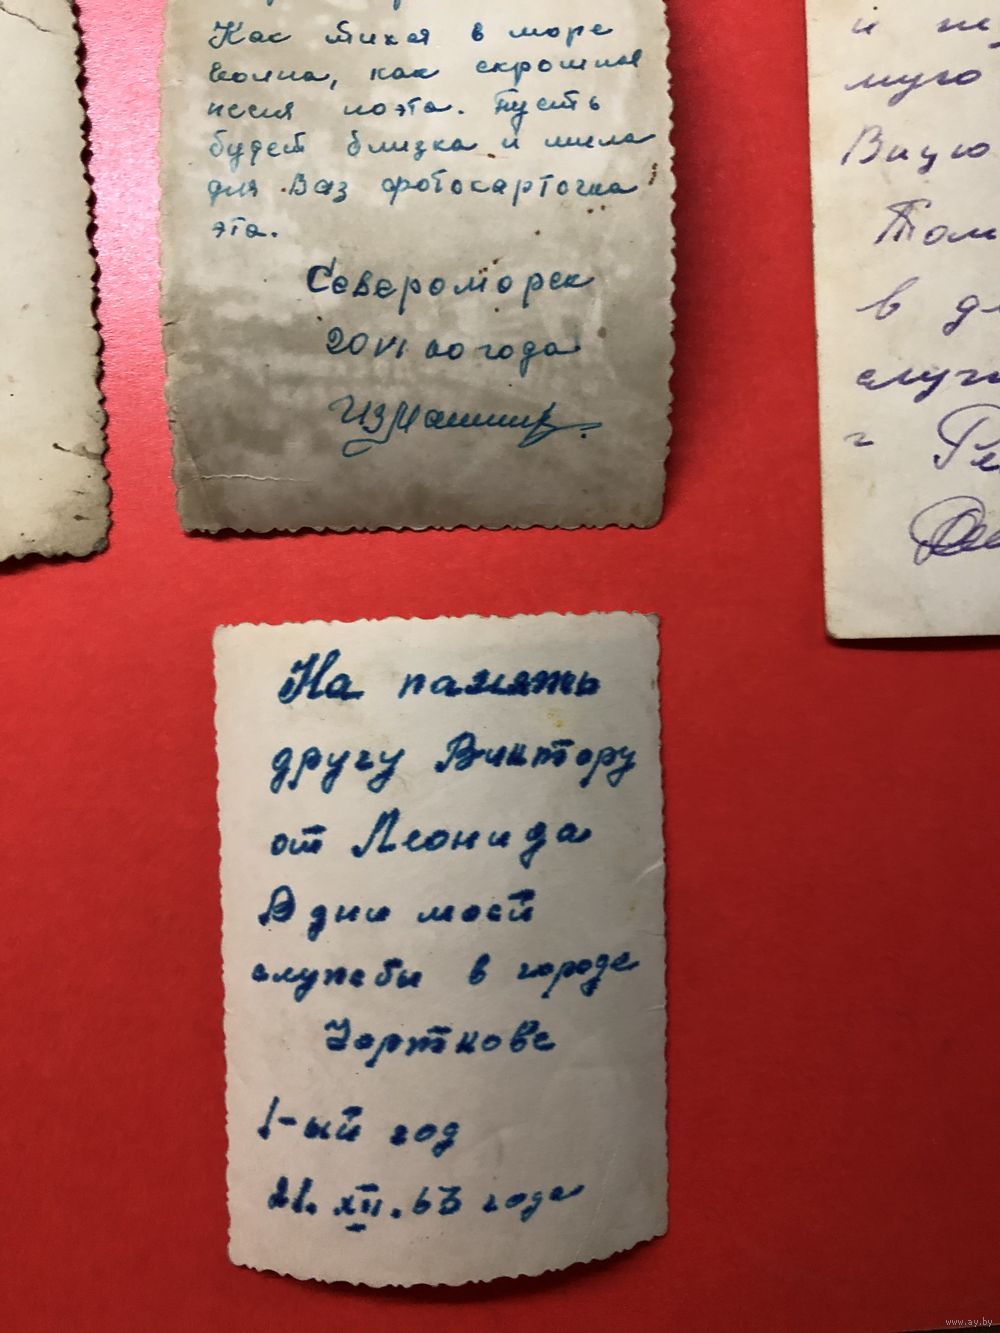 Как тихая в море
волна, как скромная
песня поэта. Пусть
будет близка и мила
для Ваз фотокарточка
эта.
Североморск
20 VI 60 года
На память
другу Виктору
от Леонида
В дни моей
службы в городе
Чорткове
1-ый год
21. XII. 63 года
и
муго
Вицю
Том
в д
случ
г Ре
www.ay.by